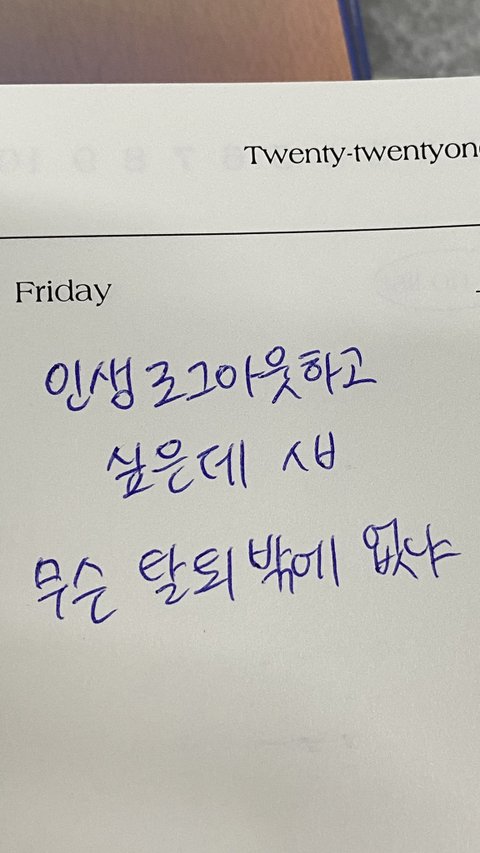 Twenty-twentyon
Friday
인생 로그아웃하고
싶은데 ㅅㅂ
무슨 탈퇴 밖에 없냐